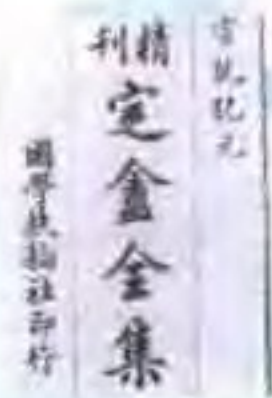 宣統紀元
精刊
定盦全集
國學扶輪社印行